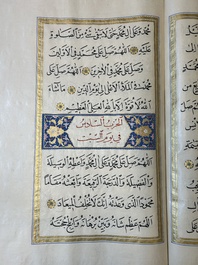 محمد وعلى آل محمد حتى لا يبقى شيء من الصلاة
عليه اللهم صل على محمد في الأولين
وصل على محمد في الآخرين وصل على
محمد في الملإ الأعلى إلى يوم الدين ما شاء
الله لا قوة إلا بالله العلي العظيم
الحزب السادس
في يوم السبت
اللهم صل على محمد وعلى آل محمد وأعطه الوسيلة
والفضيلة والدرجة الرفيعة وابعثه مقاما
محمودا الذي وعدته إنك لا تخلف الميعاد
اللهم عظم شأنه وبين برهانه وأبلج حجته